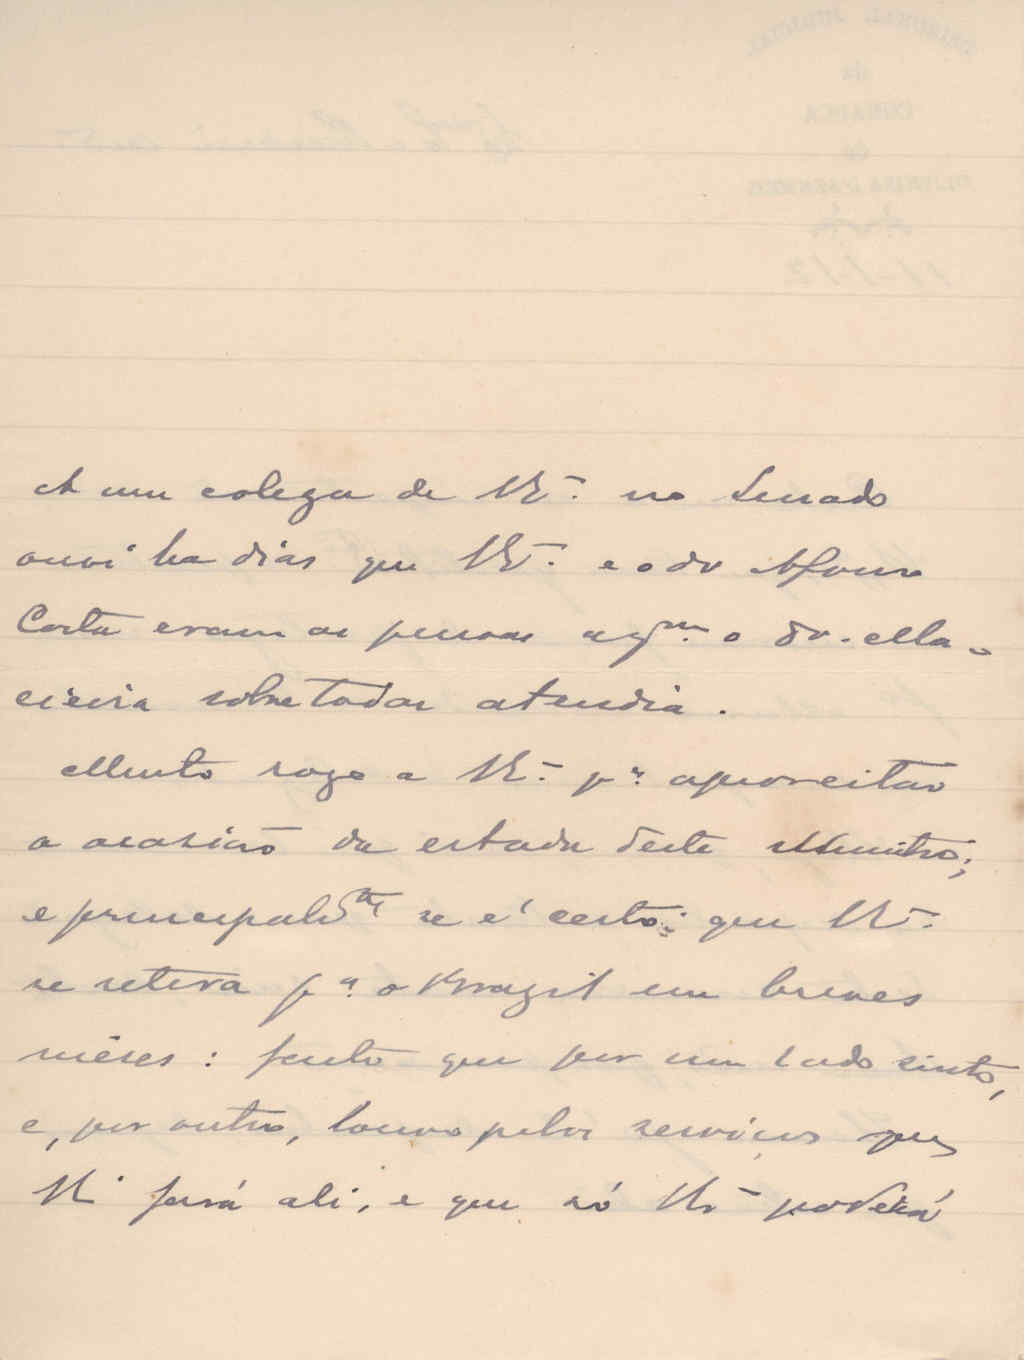 A um colega de V. Ex.ª no Senado
ouvi ha dias que V. Ex.ª e o dr Afonso
Costa eram as pessoas a q.m o Dr. Ma-
cieira sobre todas atendia.
Muito rogo a V. Ex.ª p.ª aproveitar
a ocasião da estada deste Ministro;
e principalmte se é certo que V. Ex.ª
se retira p.ª o Brazil em breves
mêses: facto que por um lado sinto,
e, por outro, louvo pelos serviços que
V. Ex.ª fará ali, e que só V. Ex.ª poderá